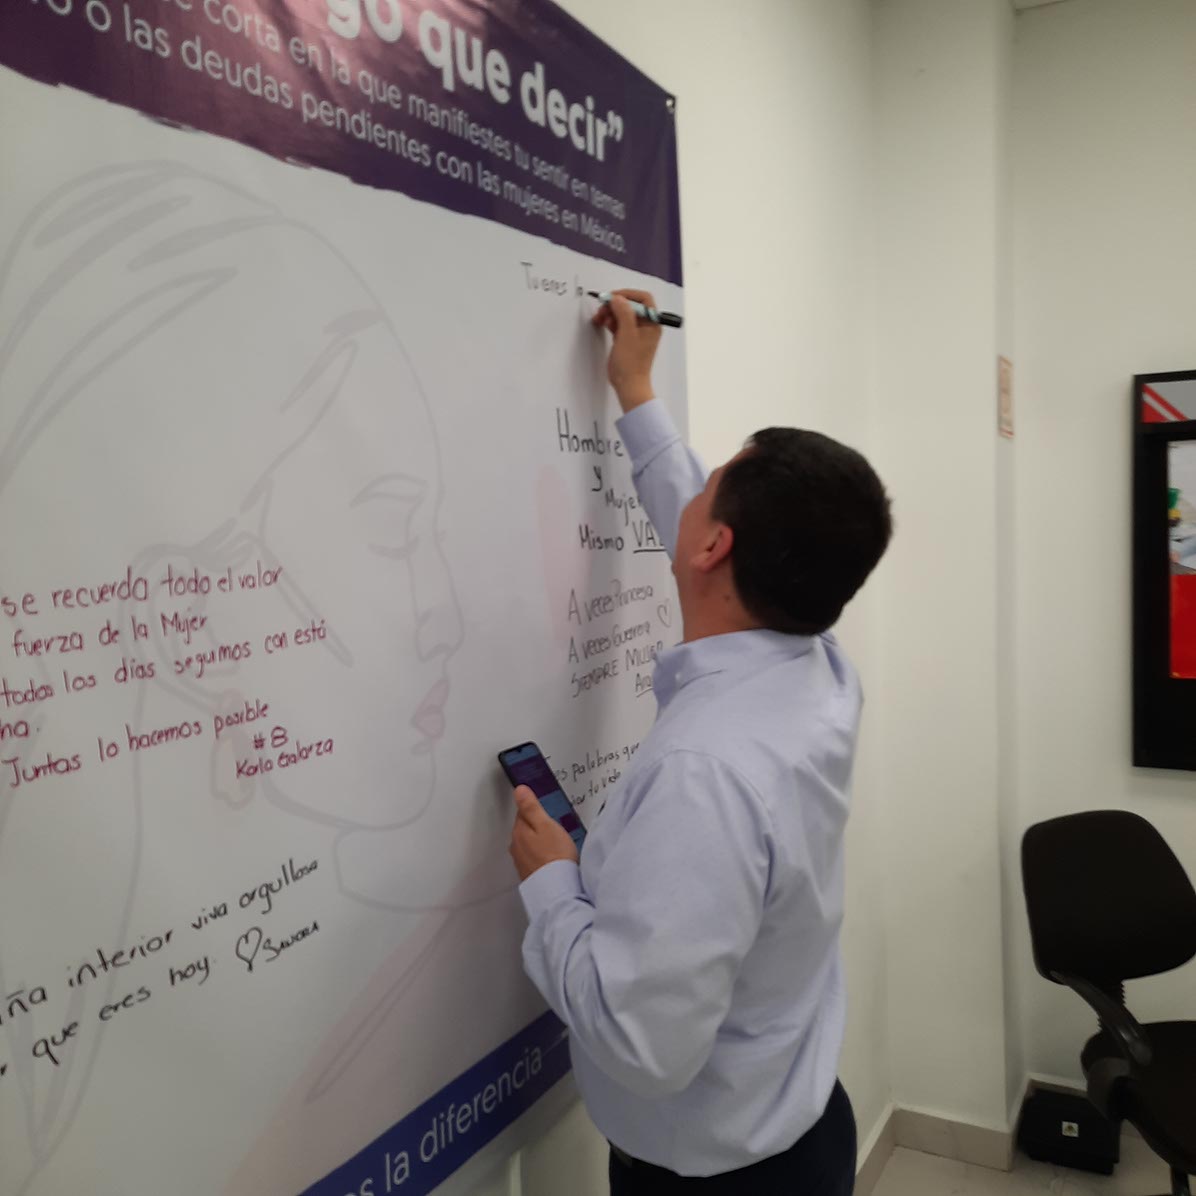 go que decir"
corta en la que manifiestes tu sentir en temas
o las deudas pendientes con las mujeres en México.
Tu eres la
Hombre
y
Mujer
Mismo
A veces Princesa
A veces Guerrera
SIEMPRE MUJER
se recuerda todo el valor
fuerza de la Mujer
todos los días seguimos con está
Juntas lo hacemos posible
#8
Karla Galarza
palabras que
tu vida
interior viva orgullosa
que eres hoy. SANDRA
la diferencia